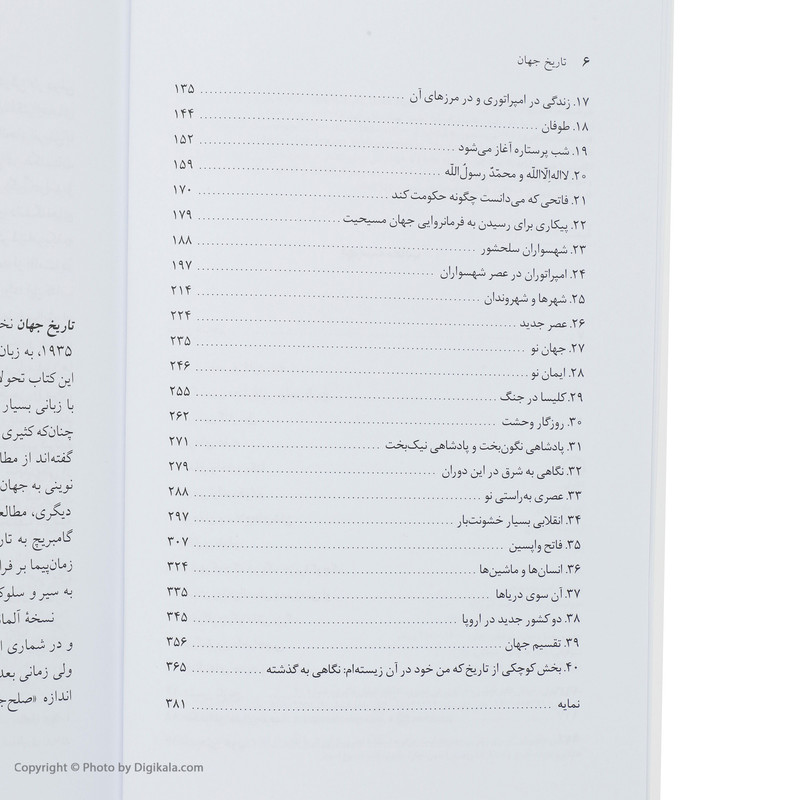 ۶ تاریخ جهان
۱۷. زندگی در امپراتوری و در مرزهای آن ........ ۱۳۵
۱۸. طوفان ........ ۱۴۴
۱۹. شب پرستاره آغاز می‌شود ........ ۱۵۲
۲۰. لااله‌اِلّااللّه و محمّدٌ رسولُ‌اللّه ........ ۱۵۹
۲۱. فاتحی که می‌دانست چگونه حکومت کند ........ ۱۷۰
۲۲. پیکاری برای رسیدن به فرمانروایی جهان مسیحیت ........ ۱۷۹
۲۳. شهسواران سلحشور ........ ۱۸۸
۲۴. امپراتوران در عصر شهسواران ........ ۱۹۷
۲۵. شهرها و شهروندان ........ ۲۱۴
۲۶. عصر جدید ........ ۲۲۴
۲۷. جهان نو ........ ۲۳۵
۲۸. ایمان نو ........ ۲۴۶
۲۹. کلیسا در جنگ ........ ۲۵۵
۳۰. روزگار وحشت ........ ۲۶۲
۳۱. پادشاهی نگون‌بخت و پادشاهی نیک‌بخت ........ ۲۷۱
۳۲. نگاهی به شرق در این دوران ........ ۲۷۹
۳۳. عصری به‌راستی نو ........ ۲۸۸
۳۴. انقلابی بسیار خشونت‌بار ........ ۲۹۷
۳۵. فاتح واپسین ........ ۳۰۷
۳۶. انسان‌ها و ماشین‌ها ........ ۳۲۴
۳۷. آن سوی دریاها ........ ۳۳۵
۳۸. دو کشور جدید در اروپا ........ ۳۴۵
۳۹. تقسیم جهان ........ ۳۵۶
۴۰. بخش کوچکی از تاریخ که من خود در آن زیسته‌ام: نگاهی به گذشته ........ ۳۶۵
نمایه ........ ۳۸۱
تاریخ جهان
۱۹۳۵، به زبان
این کتاب
با زبانی بسیار
چنان‌که کثیری
گفته‌اند از
نوینی به جهان
دیگری،
گامبریچ به
زمان‌پیما بر
به سیر و
نسخهٔ
و در شماری
ولی زمانی
اندازه
Copyright © Photo by Digikala.com